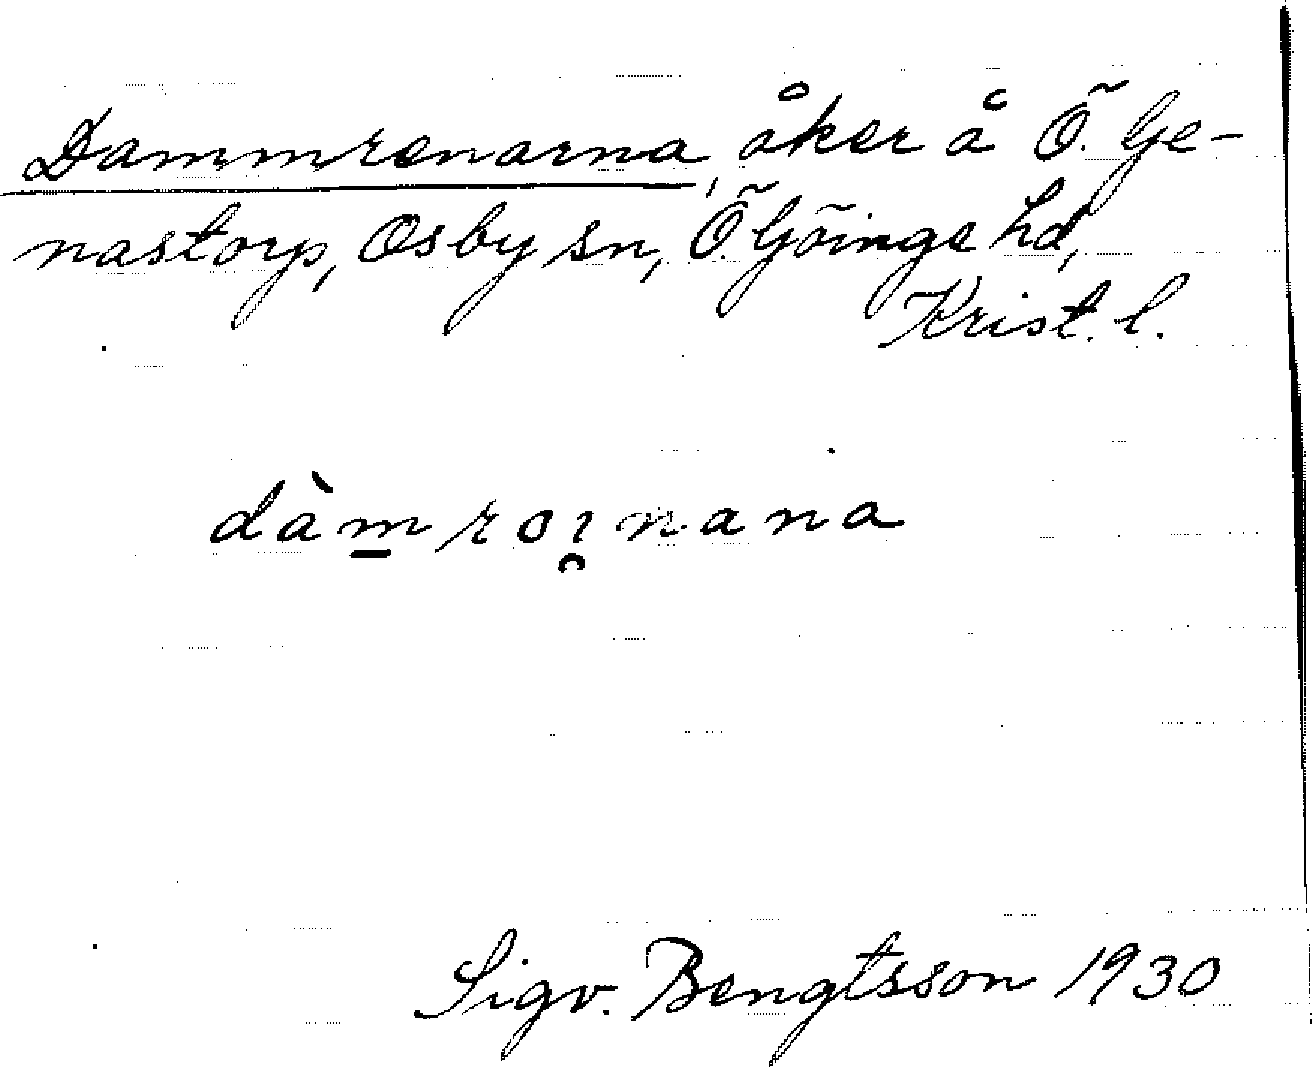 Dammrenarna, åker å Ö. Ge-
nastorp, Osby sn, Ö. Göinge hd,
Krist. l.
dàm̲roı̯nana
Sigv. Bengtsson 1930